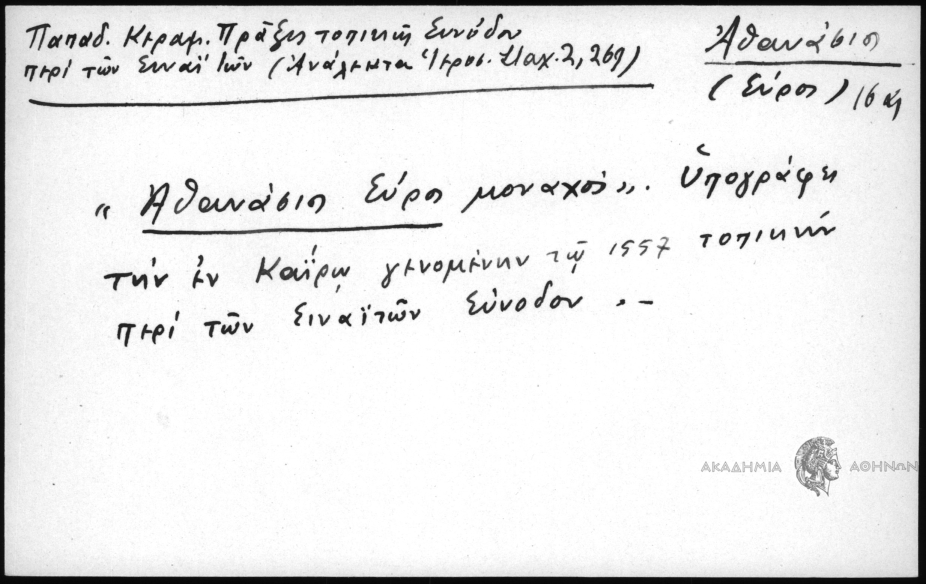 Παπαδ. Κεραμ. Πρᾶξις τοπικῆς Συνόδου
περί τῶν Σιναϊτῶν (Ἀνάλεκτα Ἱεροσ. Σταχ. 2, 269)
Ἀθανάσιος
(Σύρος) 16 αἰ
"Ἀθανάσιος Σύρος μοναχός". Ὑπογράφει
τήν ἐν Καΐρῳ γενομένην τῷ 1557 τοπικήν
περί τῶν Σιναϊτῶν Σύνοδον .–
ΑΚΑΔΗΜΙΑ ΑΘΗΝΩΝ